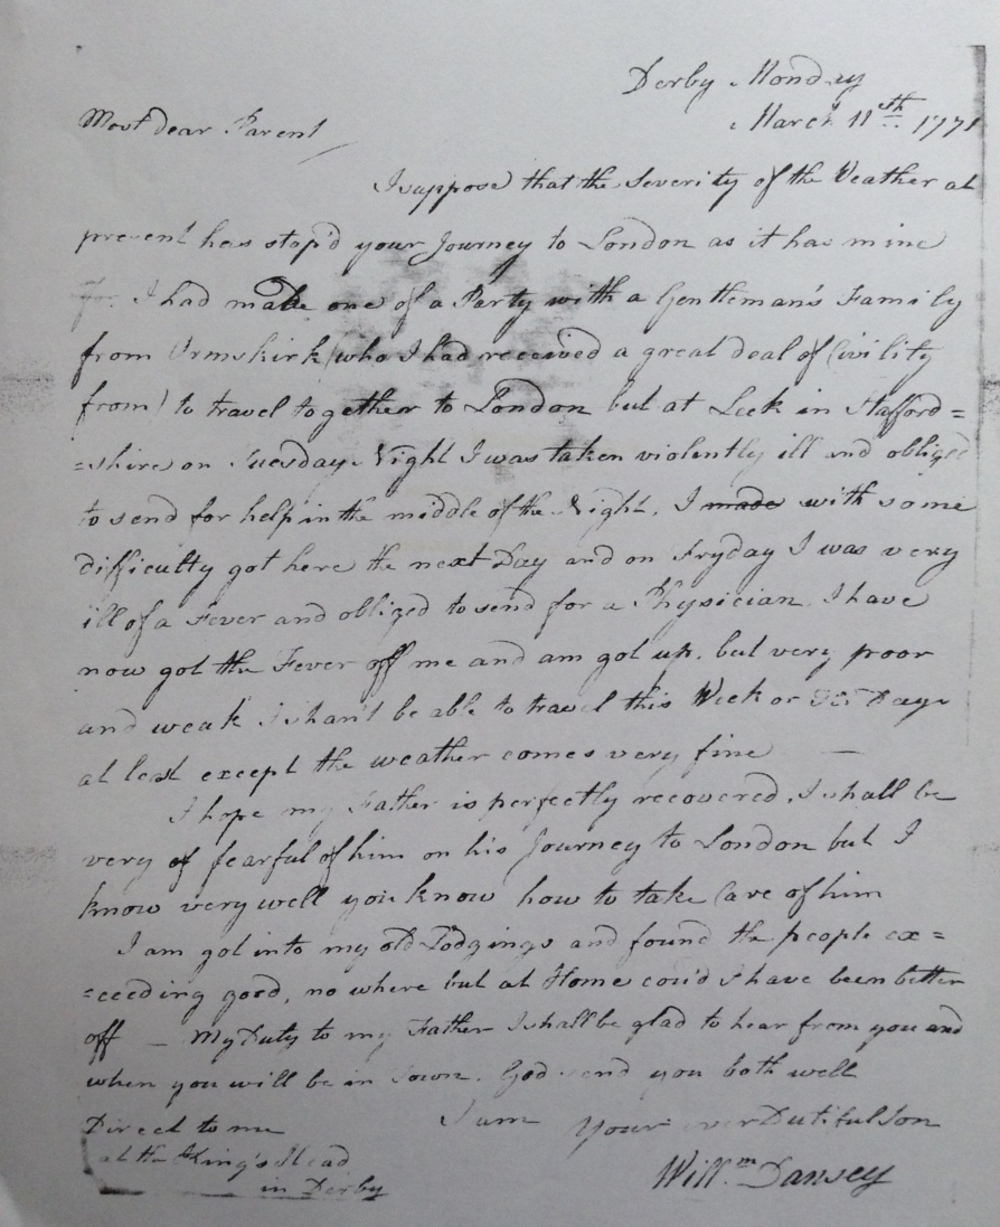 Derby Monday
March 11th 1771
Most dear Parent
I suppose that the Severity of the Weather at
present has stop'd your Journey to London as it has mine
for I had made one of a Party with a Gentleman's Family
from Ormskirk (who I had received a great deal of Civility
from) to travel together to London but at Leek in Stafford=
=shire on Tuesday Night I was taken violently ill and obliged
to send for help in the middle of the Night. I made with some
difficulty got here the next Day and on Fryday I was very
ill of a Fever and obliged to send for a Physician. I have
now got the Fever off me and am got up. but very poor
and weak I shan't be able to travel this Week or Days
at least except the weather comes very fine —
I hope my Father is perfectly recovered. I shall be
very of fearful of him on his Journey to London but I
know very well you know how to take Care of him
I am got into my old Lodgings and found the people ex=
=ceeding good, no where but at Home cou'd I have been better
off — My Duty to my Father I shall be glad to hear from you and
when you will be in Town. God send you both well
Direct to me I am Your ever Dutiful son
at the King's Head
in Derby
Will.m Dansey